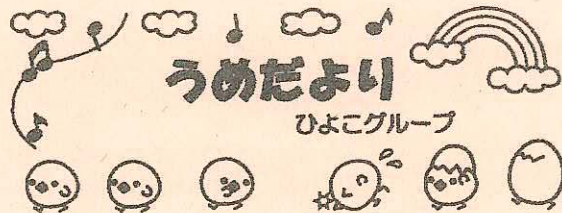 うめだより
ひよこグループ